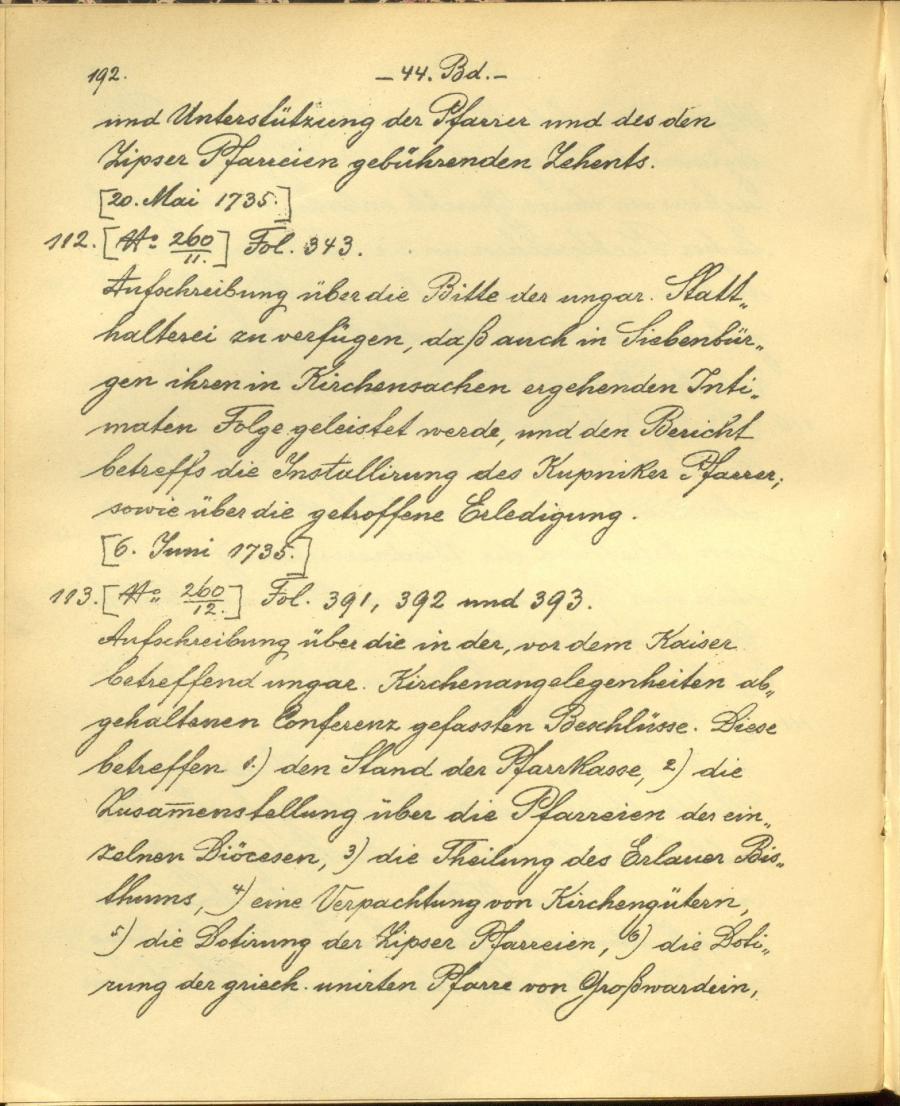 192. – 44. Bd. –
und Unterstützung der Pfarrer und des den
Zipser Pfarreien gebührenden Zehents.
[20. Mai 1735.]
112. [No 260/11.] Fol. 343.
Aufschreibung über die Bitte der ungar. Statt„
halterei zu verfügen, daß auch in Siebenbür„
gen ihren in Kirchensachen ergehenden Inti„
maten Folge geleistet werde, und den Bericht
betreffs die Installirung des Kupniker Pfarrer,
sowie über die getroffene Erledigung.
[6. Juni 1735.]
113. [No 260/12.] Fol. 391, 392 und 393.
Aufschreibung über die in der, vor dem Kaiser
betreffend ungar. Kirchenangelegenheiten ab„
gehaltenen Conferenz gefassten Beschlüsse. Diese
betreffen 1.) den Stand der Pfarrkasse, 2) die
Zusam̅enstellung über die Pfarreien der ein„
zelnen Diöcesen, 3) die Theilung des Erlauer Bis„
thums, 4) eine Verpachtung von Kirchengütern,
5) die Dotirung der Zipser Pfarreien, 6) die Doti„
rung der griech. unirten Pfarre von Großwardein,